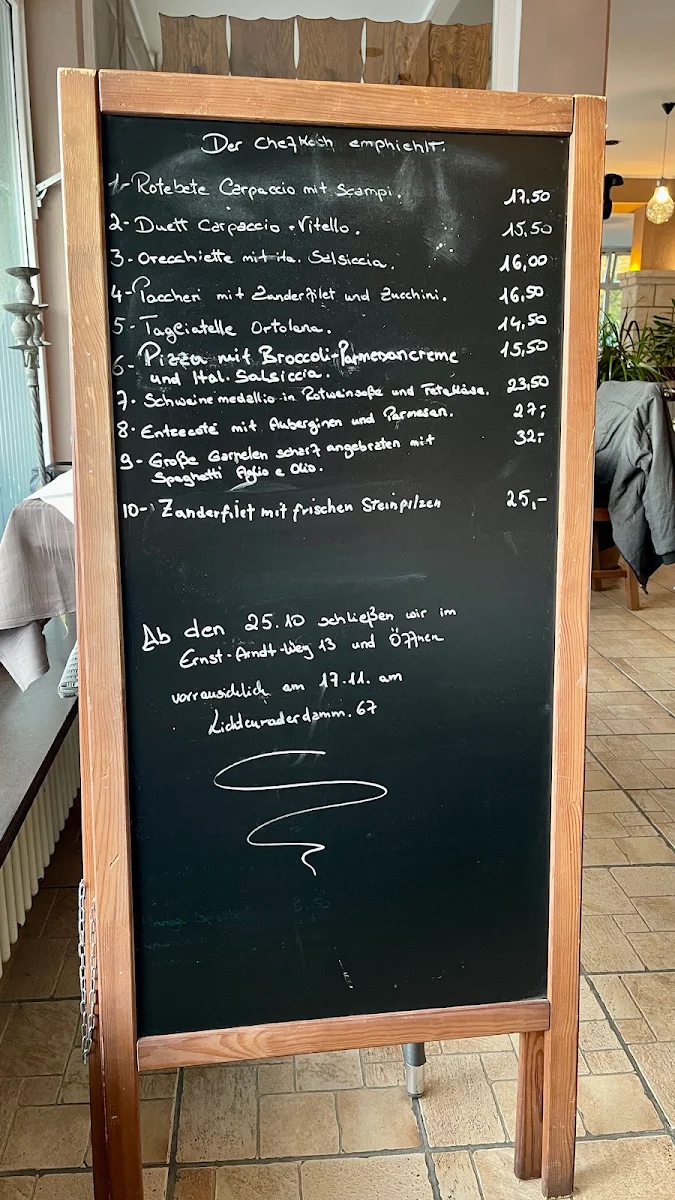 Der Chefkoch emphiehlt.
1- Rotebete Carpaccio mit Scampi. 17,50
2- Duett Carpaccio + Vitello. 15,50
3- Orecchiette mit ita. Salsiccia. 16,00
4- Paccheri mit Zanderfilet und Zucchini. 16,50
5- Tagliatelle Ortolana. 14,50
6- Pizza mit Broccoli-Parmesancreme 15,50
und Ital. Salsiccia.
7- Schweinemedallio in Rotweinsoße und Fetakäse. 23,50
8- Entrecoté mit Auberginen und Parmesan. 27,-
9- Große Garnelen scharf angebraten mit 32,-
Spaghetti Aglio e Olio.
10- Zanderfilet mit frischen Steinpilzen 25,-
Ab den 25.10 schließen wir im
Ernst-Arndt-Weg 13 und Öffnen
vorrausichlich am 17.11. am